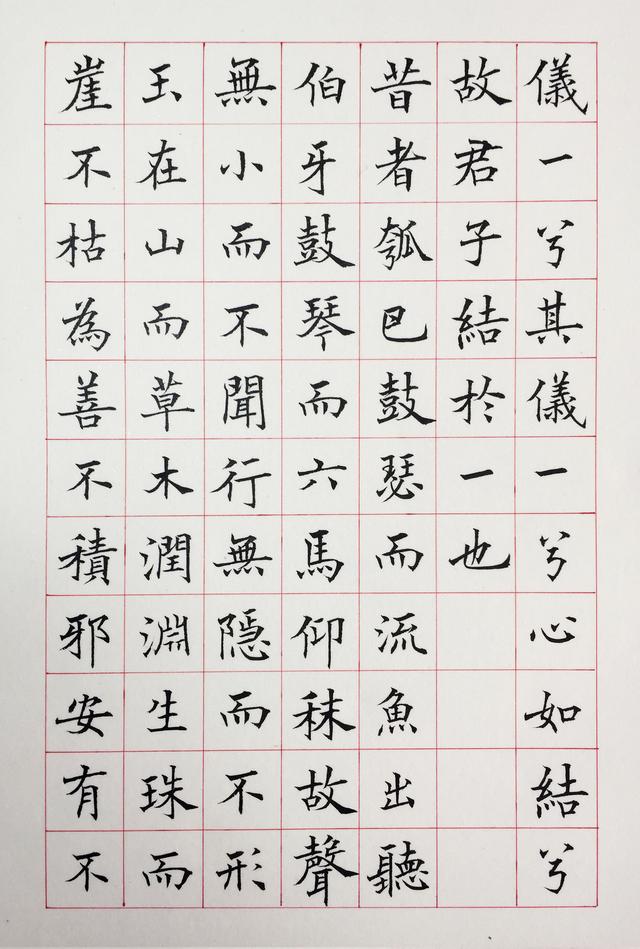 儀一兮其儀一兮心如結兮
故君子結於一也
昔者瓠巴鼓瑟而流魚出聽
伯牙鼓琴而六馬仰秣故聲
無小而不聞行無隱而不形
玉在山而草木潤淵生珠而
崖不枯為善不積邪安有不